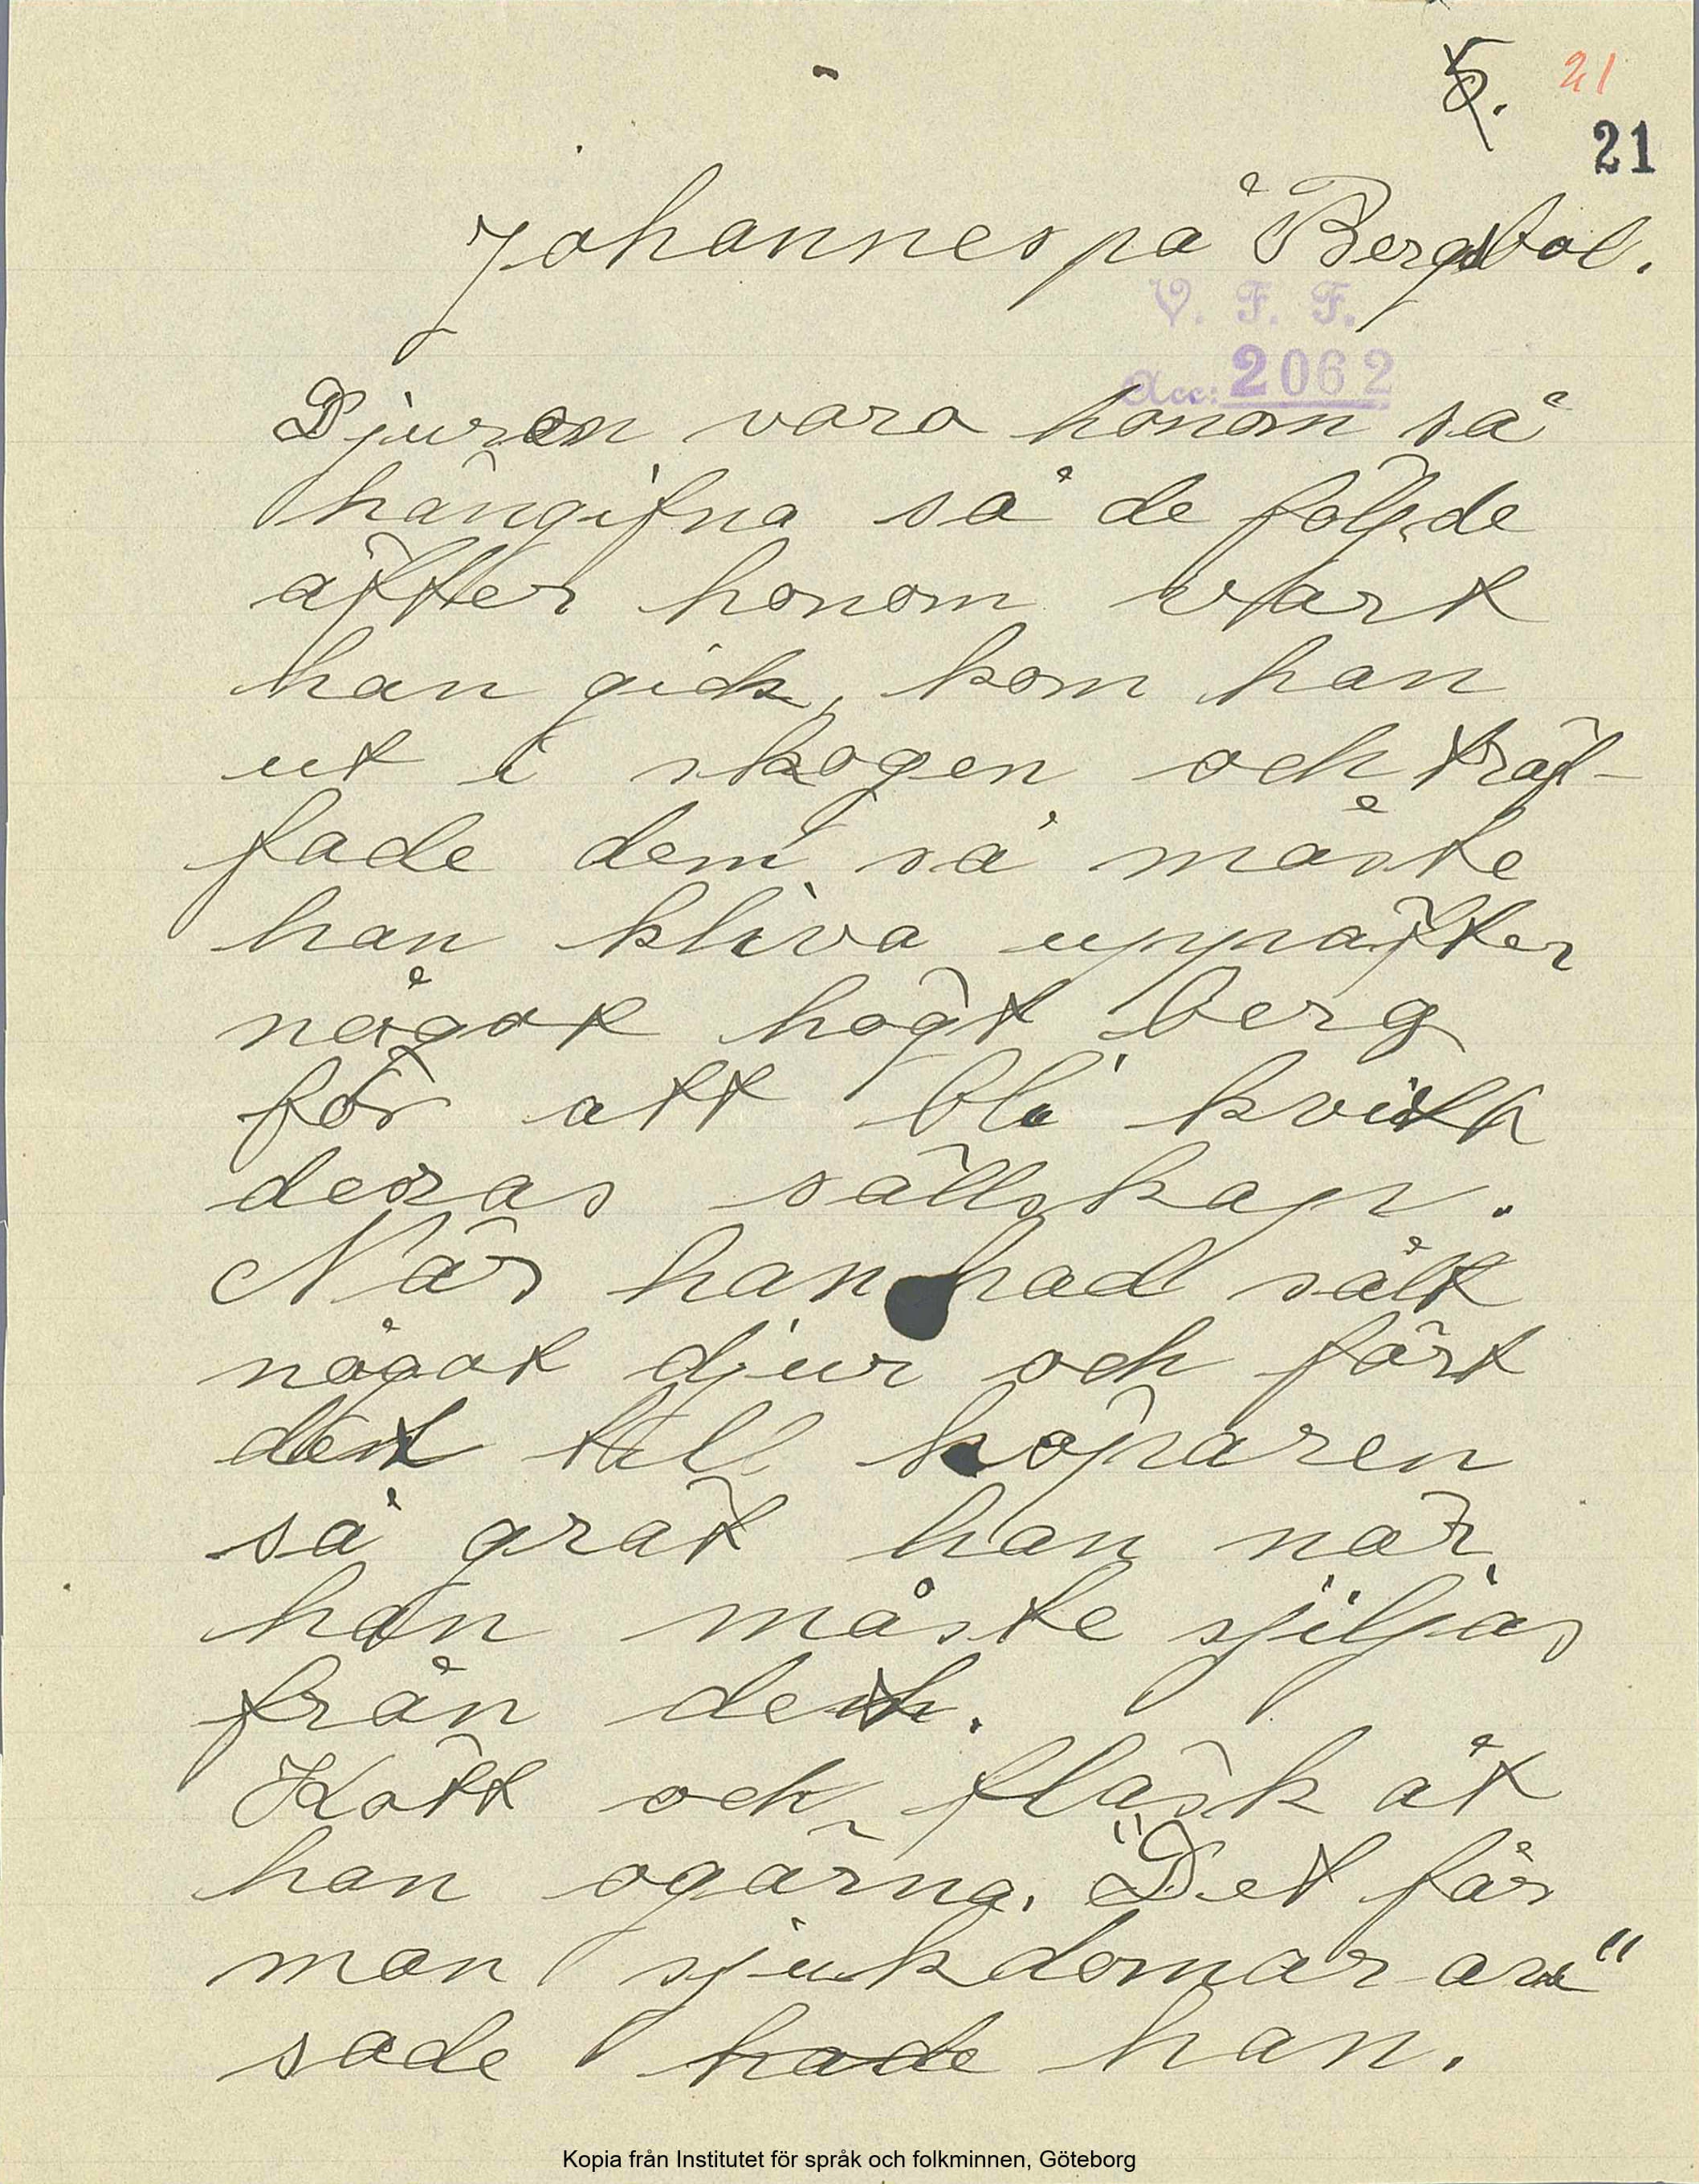 5. 21
21
Johannes på Bergstol.
V. F. F.
Acc: 2062
Djuren vara honom så
hängifna så de följde
äfter honom vart
han gick, kom han
ut i skogen och träf-
fade dem så måste
han kliva uppäfter
något högt berg
för att bli kvitt
deras sällskap.
När han had sålt
något djur och fört
det till köparen
så grät han när
han måste sjiljas
från det.
Kött och fläsk åt
han ogärna. "Det får
man sjukdomar av"
sade hade han.
Kopia från Institutet för språk och folkminnen, Göteborg